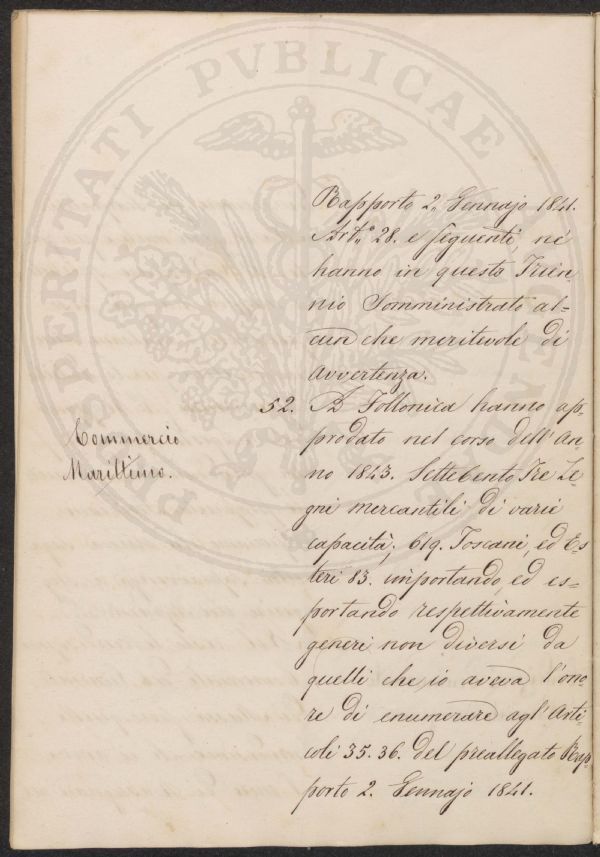 PROSPERITATI PVBLICAE AVGENDAE
Rapporto 2,, Gennajo 1841.
Art.° 28. e seguenti, né
hanno in questo Trien=
nio Somministrato al=
cun che meritevole di
Avvertenza.
52. A Follonica hanno ap=
Commercio
Marittimo.
prodato nel corso dell'An=
no 1843. Settecento Tre Le=
gni mercantili di varie
capacità; 619. Toscani, ed Es=
teri 83. importando, ed es=
portando respettivamente
generi non diversi da
quelli che io aveva l'ono=
re di enumerare agl'Arti=
coli 35. 36. del preallegato Rap=
porto 2. Gennajo 1841.